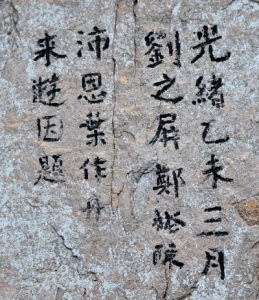 光緒乙未三月
劉之屏鄭陳
沛恩葉丹
来遊因題